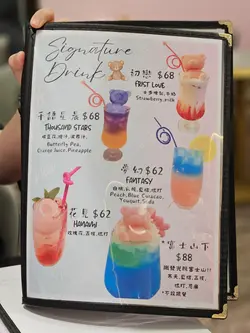 Signature
Drink
初戀 $68
FIRST LOVE
士多啤梨,牛奶
Strawberry,milk
千鍾星 $68
THOUSAND STARS
蝶豆花,橙汁,菠蘿汁
Butterfly Pea,
Orange Juice, Pineapple
夢幻 $62
FANTASY
Peach, Blue Curacao,
Yougurt, Soda
花見 $62
HANAMI
玫瑰花,荔枝,梳打
富士山下
$88